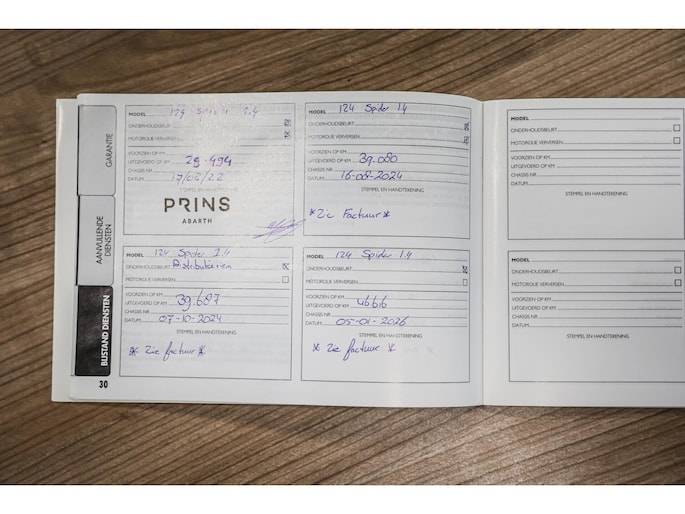 GARANTIE
AANVULLENDE
DIENSTEN
BIJSTAND DIENSTEN
30
MODEL 124 Spider 1.4
ONDERHOUDSBEURT
MOTOROLIE VERVERSEN
VOORZIEN OP KM
UITGEVOERD OP KM 29.494
CHASSIS NR
DATUM 17/02/22
STEMPEL EN HANDTEKENING
PRINS
ABARTH
MODEL 124 Spider 1.4
ONDERHOUDSBEURT
MOTOROLIE VERVERSEN
VOORZIEN OP KM
UITGEVOERD OP KM 39.080
CHASSIS NR
DATUM 16-08-2024
STEMPEL EN HANDTEKENING
* Zie Factuur *
MODEL 124 Spider 1.4
ONDERHOUDSBEURT Distributieriem
MOTOROLIE VERVERSEN
VOORZIEN OP KM
UITGEVOERD OP KM 39.687
CHASSIS NR
DATUM 07-10-2024
STEMPEL EN HANDTEKENING
* Zie factuur *
MODEL 124 Spider 1.4
ONDERHOUDSBEURT
MOTOROLIE VERVERSEN
VOORZIEN OP KM
UITGEVOERD OP KM 46616
CHASSIS NR
DATUM 05-01-2026
STEMPEL EN HANDTEKENING
* Zie factuur *
MODEL
ONDERHOUDSBEURT
MOTOROLIE VERVERSEN
VOORZIEN OP KM
UITGEVOERD OP KM
CHASSIS NR
DATUM
STEMPEL EN HANDTEKENING
MODEL
ONDERHOUDSBEURT
MOTOROLIE VERVERSEN
VOORZIEN OP KM
UITGEVOERD OP KM
CHASSIS NR
DATUM
STEMPEL EN HANDTEKENING